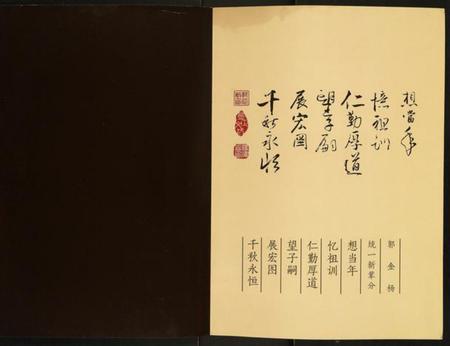 想當年
憶祖訓
仁勤厚道
望子嗣
展宏图
千秋永恒
郭金杨
统一新辈分
想当年
忆祖训
仁勤厚道
望子嗣
展宏图
千秋永恒